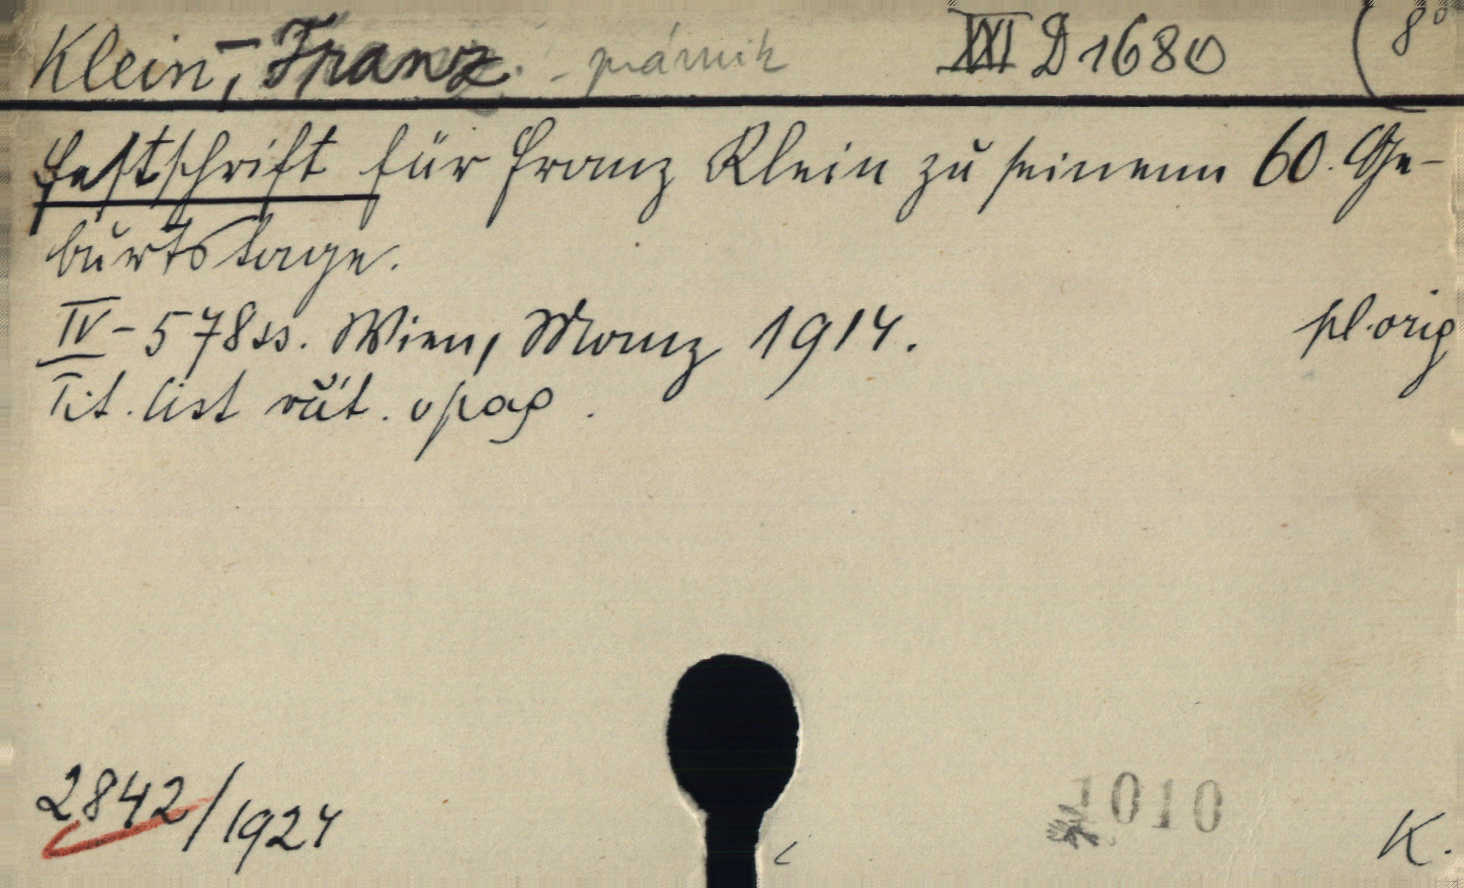 Klein, Franz - právník XXI D 1680 8°
Festschrift für Franz Klein zu seinem 60. Ge-
burtstage.
IV - 578 ss. Wien, Manz 1914. pl. orig
Tit. list
2842/1924 1010 K.